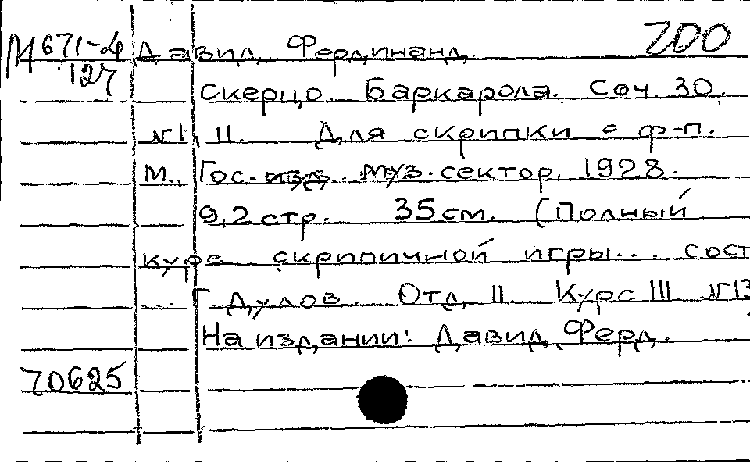 М 671-4 Давид, Фердинанд. 200
127 Скерцо. Баркарола. Соч. 30,
№ I, II. Для скрипки с ф-п.
М., Гос. изд. муз. сектор, 1928.
9,2 стр. 35 см. (Полный
курс скрипичной игры... сост
.. Г Дулов. Отд II. Курс III №13
На издании: Давид, Ферд.
70625